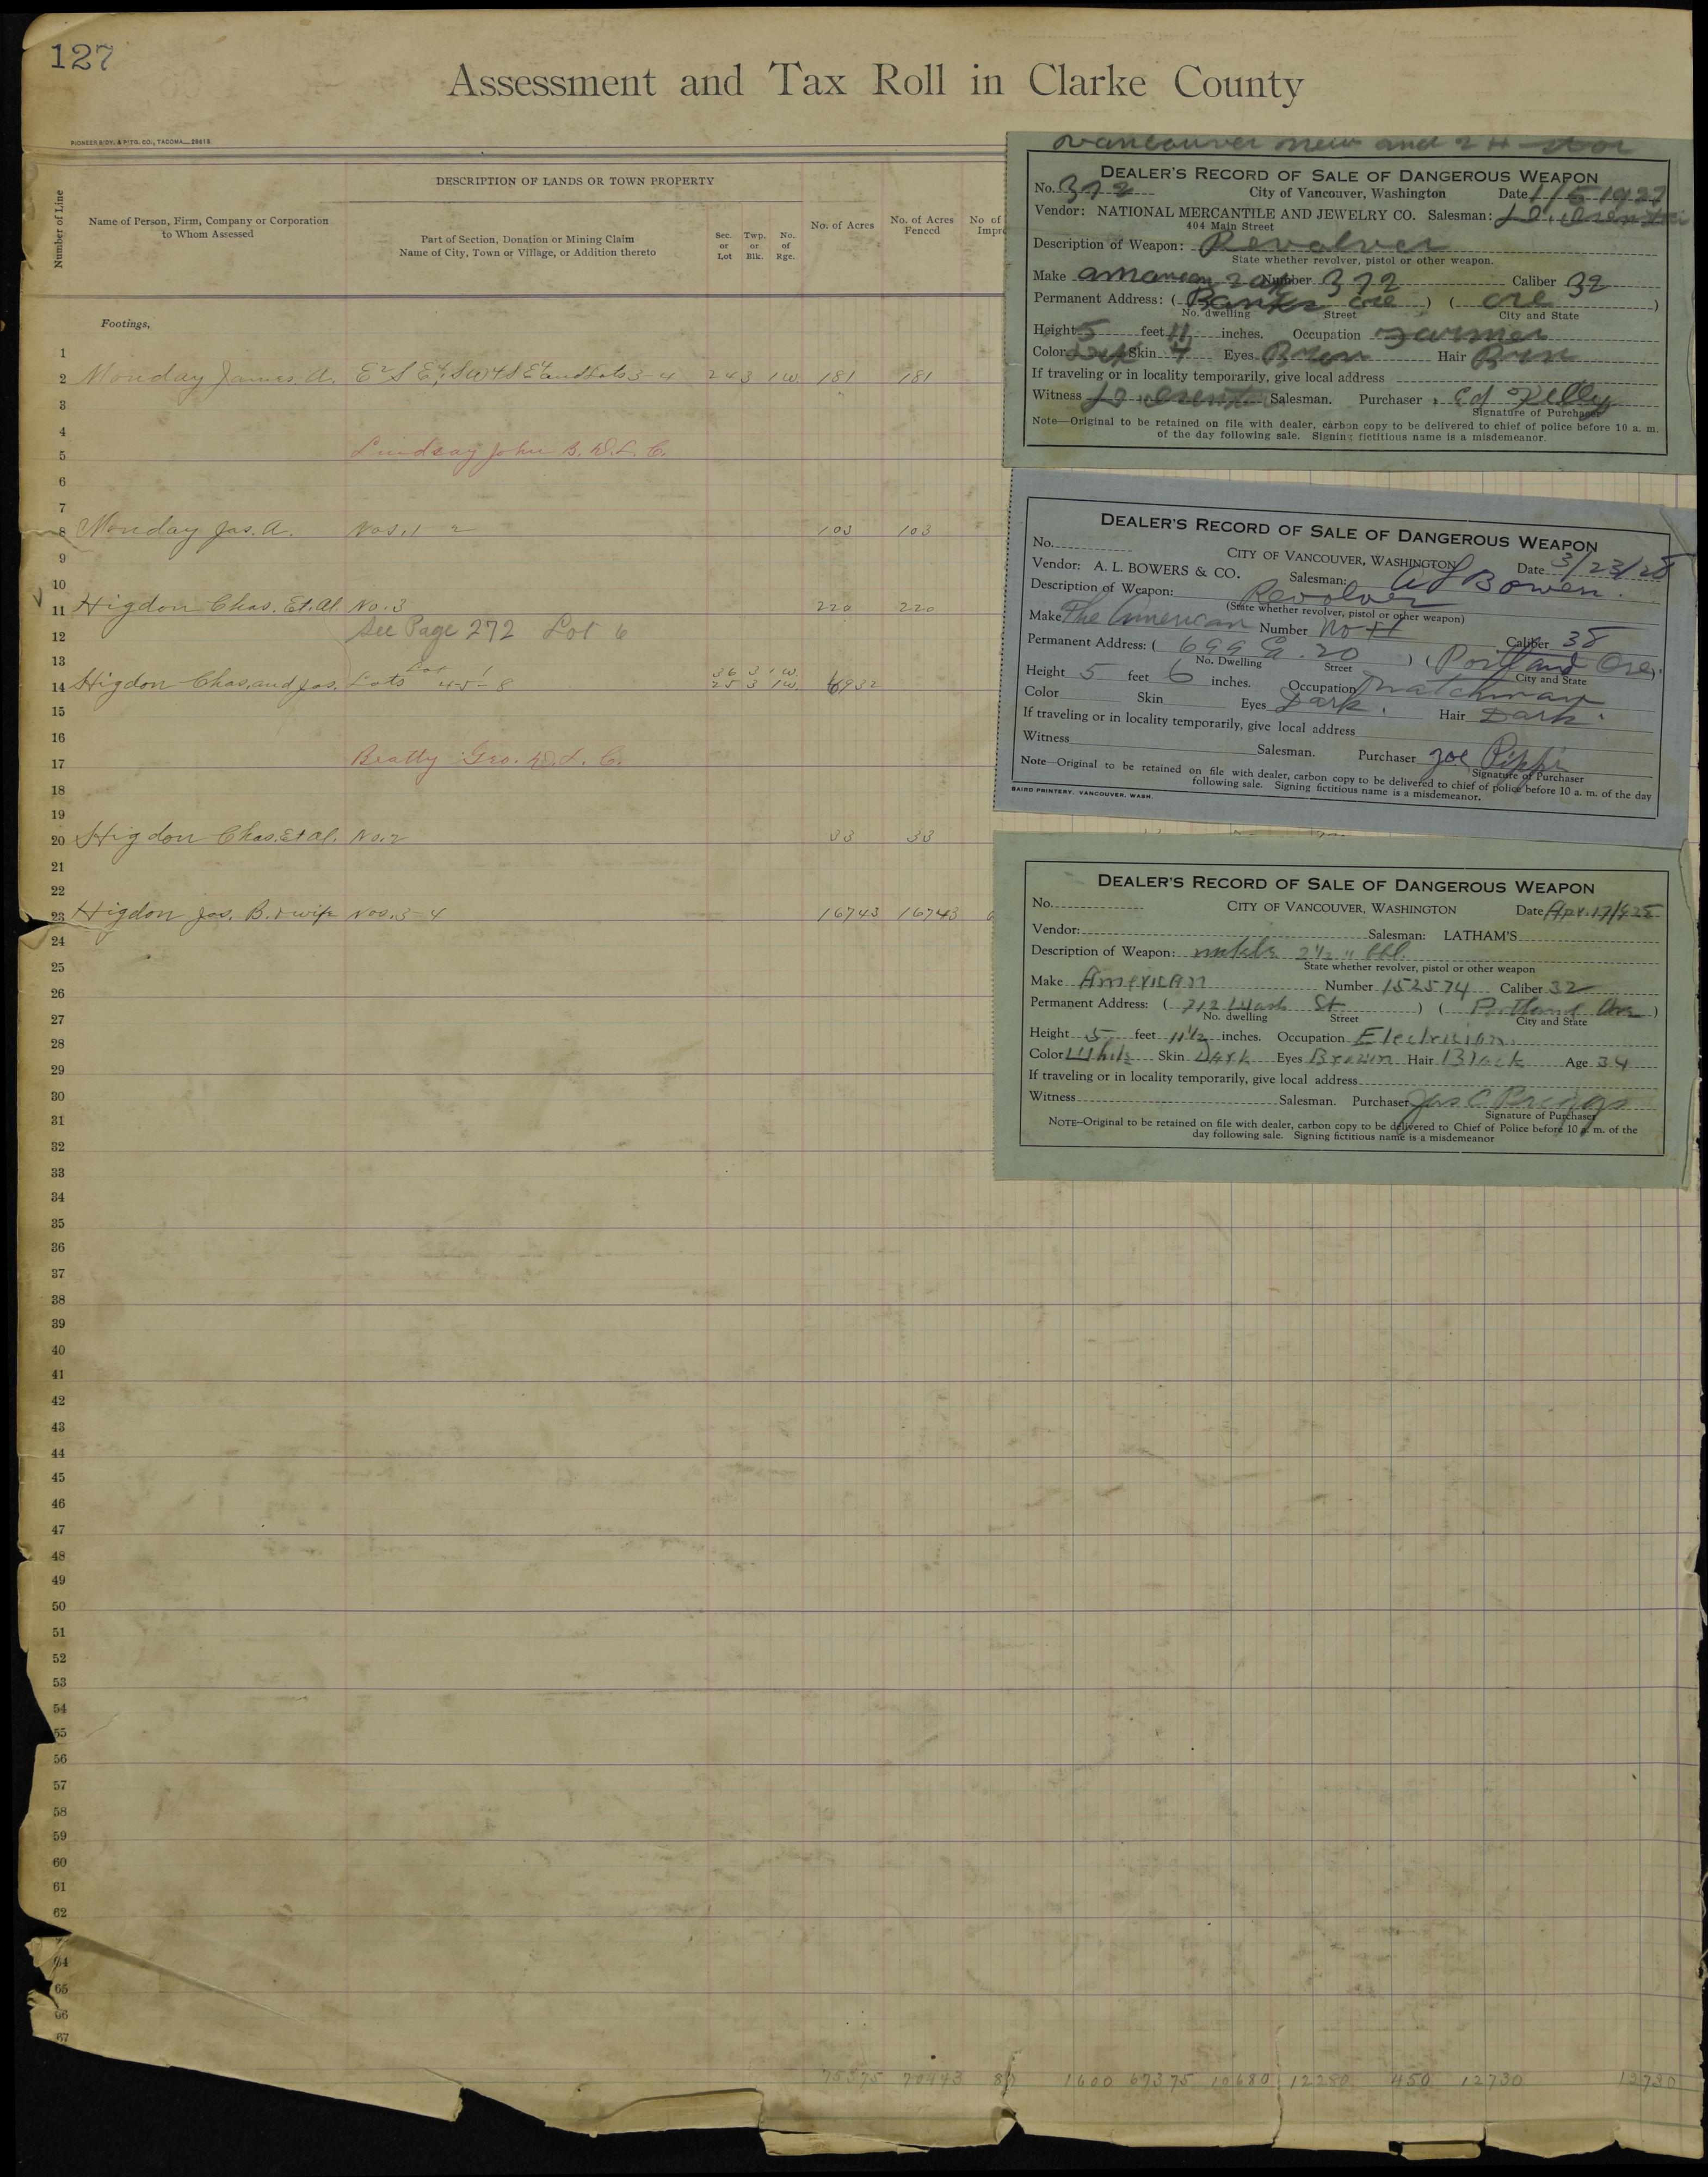 127
Assessment and Tax Roll in Clarke County
PIONEER B'DY. & P'T'G. CO., TACOMA
Number of Line
Name of Person, Firm, Company or Corporation
to Whom Assessed
DESCRIPTION OF LANDS OR TOWN PROPERTY
Part of Section, Donation or Mining Claim
Name of City, Town or Village, or Addition thereto
Sec. or Lot
Twp. or Blk.
No. of Rge.
No. of Acres
No. of Acres Fenced
No of
Impro
Footings,
1
2 Monday James. A. and Lots 3-4 24 3 1W. 181 181
3
4
5 Lindsay John B. D. L. C.
6
7
8 Monday Jas. A. Nos. 1 2 103 103
9
10
11 Higdon Chas. Et. Al. No. 3 220 220
12 See Page 272 Lot 6
13 Lot 1 36 3 1W.
14 Higdon Chas. and Jas. Lots 4-5-8 25 3 1W. 6932
15
16
17 Beatty Geo. D. L. C.
18
19
20 Higdon Chas. Et Al. No. 2 33 33
21
22
23 Higdon Jas. B. & wife Nos. 3-4 16743 16743
24
25
26
27
28
29
30
31
32
33
34
35
36
37
38
39
40
41
42
43
44
45
46
47
48
49
50
51
52
53
54
55
56
57
58
59
60
61
62
64
65
66
67
75575 70443 1600 67375 10680 12280 450 12730 12730
Vancouver new and 2 H
DEALER'S RECORD OF SALE OF DANGEROUS WEAPON
No. 372 City of Vancouver, Washington Date 1/5 1927
Vendor: NATIONAL MERCANTILE AND JEWELRY CO. Salesman:
404 Main Street
Description of Weapon: Revolver
State whether revolver, pistol or other weapon.
Make American Number 372 Caliber 32
Permanent Address: ( Banks ore ) ( ore )
No. dwelling Street City and State
Height 5 feet 11 inches. Occupation Farmer
Color Skin Eyes Brown Hair Brn
If traveling or in locality temporarily, give local address
Witness Salesman. Purchaser Ed Kelley
Signature of Purchaser
Note—Original to be retained on file with dealer, carbon copy to be delivered to chief of police before 10 a. m.
of the day following sale. Signing fictitious name is a misdemeanor.
DEALER'S RECORD OF SALE OF DANGEROUS WEAPON
No.
CITY OF VANCOUVER, WASHINGTON Date 3/23/28
Vendor: A. L. BOWERS & CO. Salesman:
Description of Weapon: Revolver
(State whether revolver, pistol or other weapon)
Make The American Number No Caliber 38
Permanent Address: ( 699 E. 20 ) ( Portland Ore. )
No. Dwelling Street City and State
Height 5 feet 6 inches. Occupation Watchman
Color Skin Eyes Dark. Hair Dark.
If traveling or in locality temporarily, give local address
Witness Salesman. Purchaser Joe
Signature of Purchaser
Note—Original to be retained on file with dealer, carbon copy to be delivered to chief of police before 10 a. m. of the day
following sale. Signing fictitious name is a misdemeanor.
BAIRD PRINTERY. VANCOUVER. WASH.
DEALER'S RECORD OF SALE OF DANGEROUS WEAPON
No. CITY OF VANCOUVER, WASHINGTON Date Apr. 17/1928
Vendor: Salesman: LATHAM'S
Description of Weapon: 2 1/2 " bbl.
State whether revolver, pistol or other weapon
Make American Number 152574 Caliber 32
Permanent Address: ( 212 Wash St ) ( Portland Ore )
No. dwelling Street City and State
Height 5 feet 11 1/2 inches. Occupation Electrician.
Color White Skin Dark Eyes Brown Hair Black Age 34
If traveling or in locality temporarily, give local address
Witness Salesman. Purchaser Jas C Briggs
Signature of Purchaser
NOTE--Original to be retained on file with dealer, carbon copy to be delivered to Chief of Police before 10 a. m. of the
day following sale. Signing fictitious name is a misdemeanor